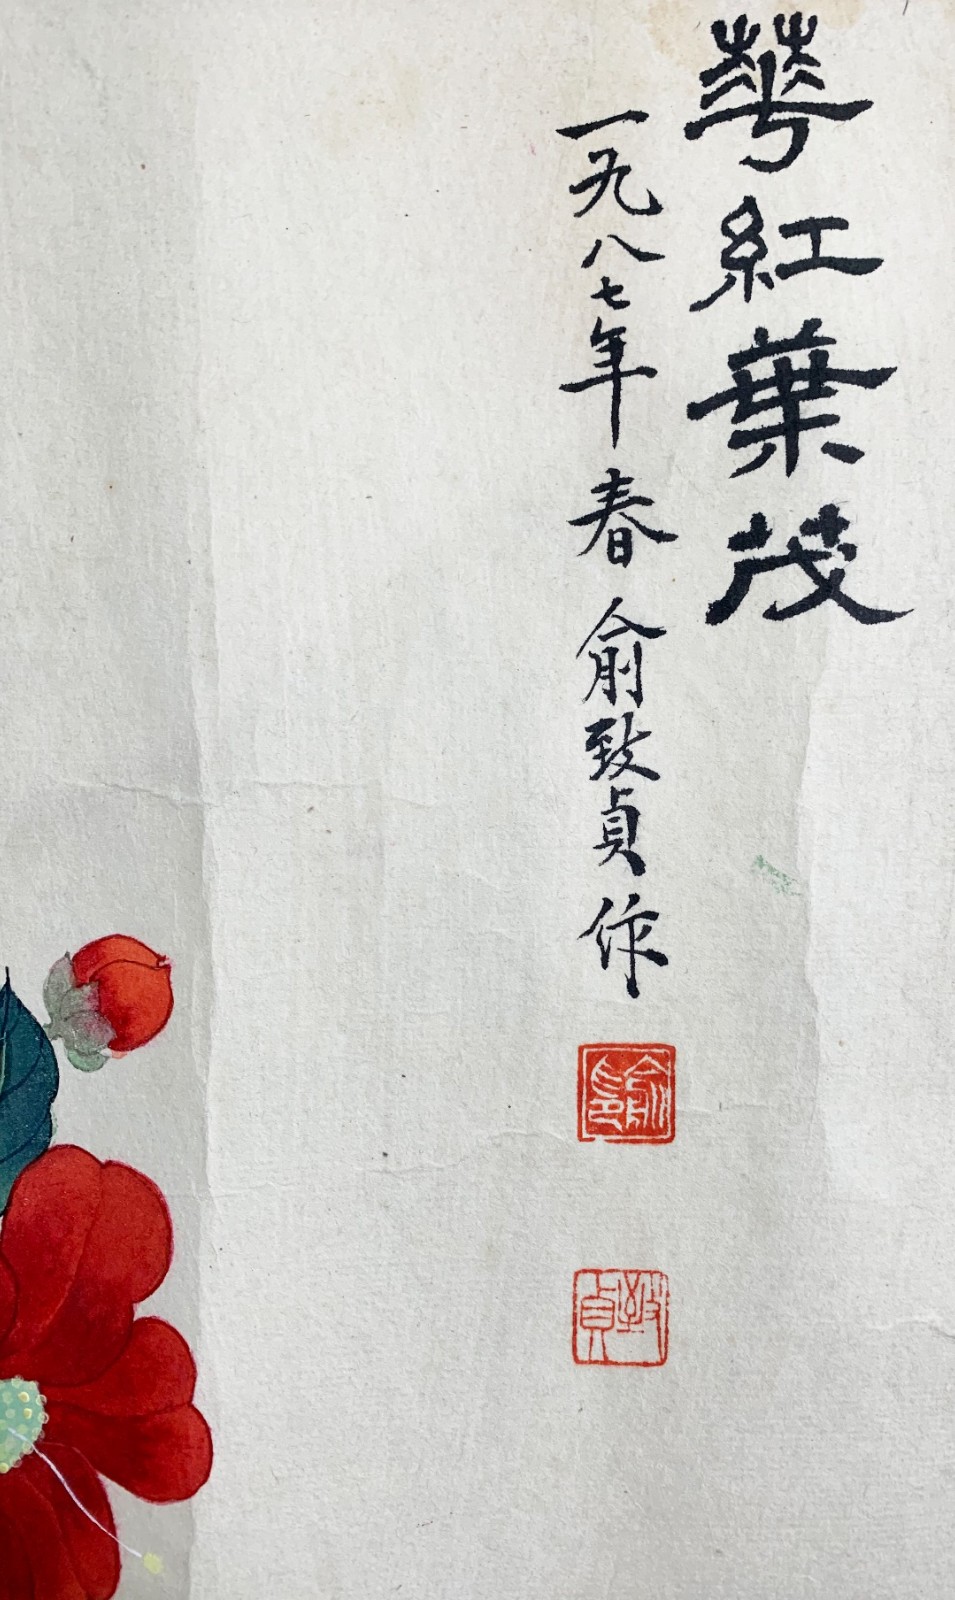 華紅葉茂
一九八七年春俞致貞作
俞
致貞